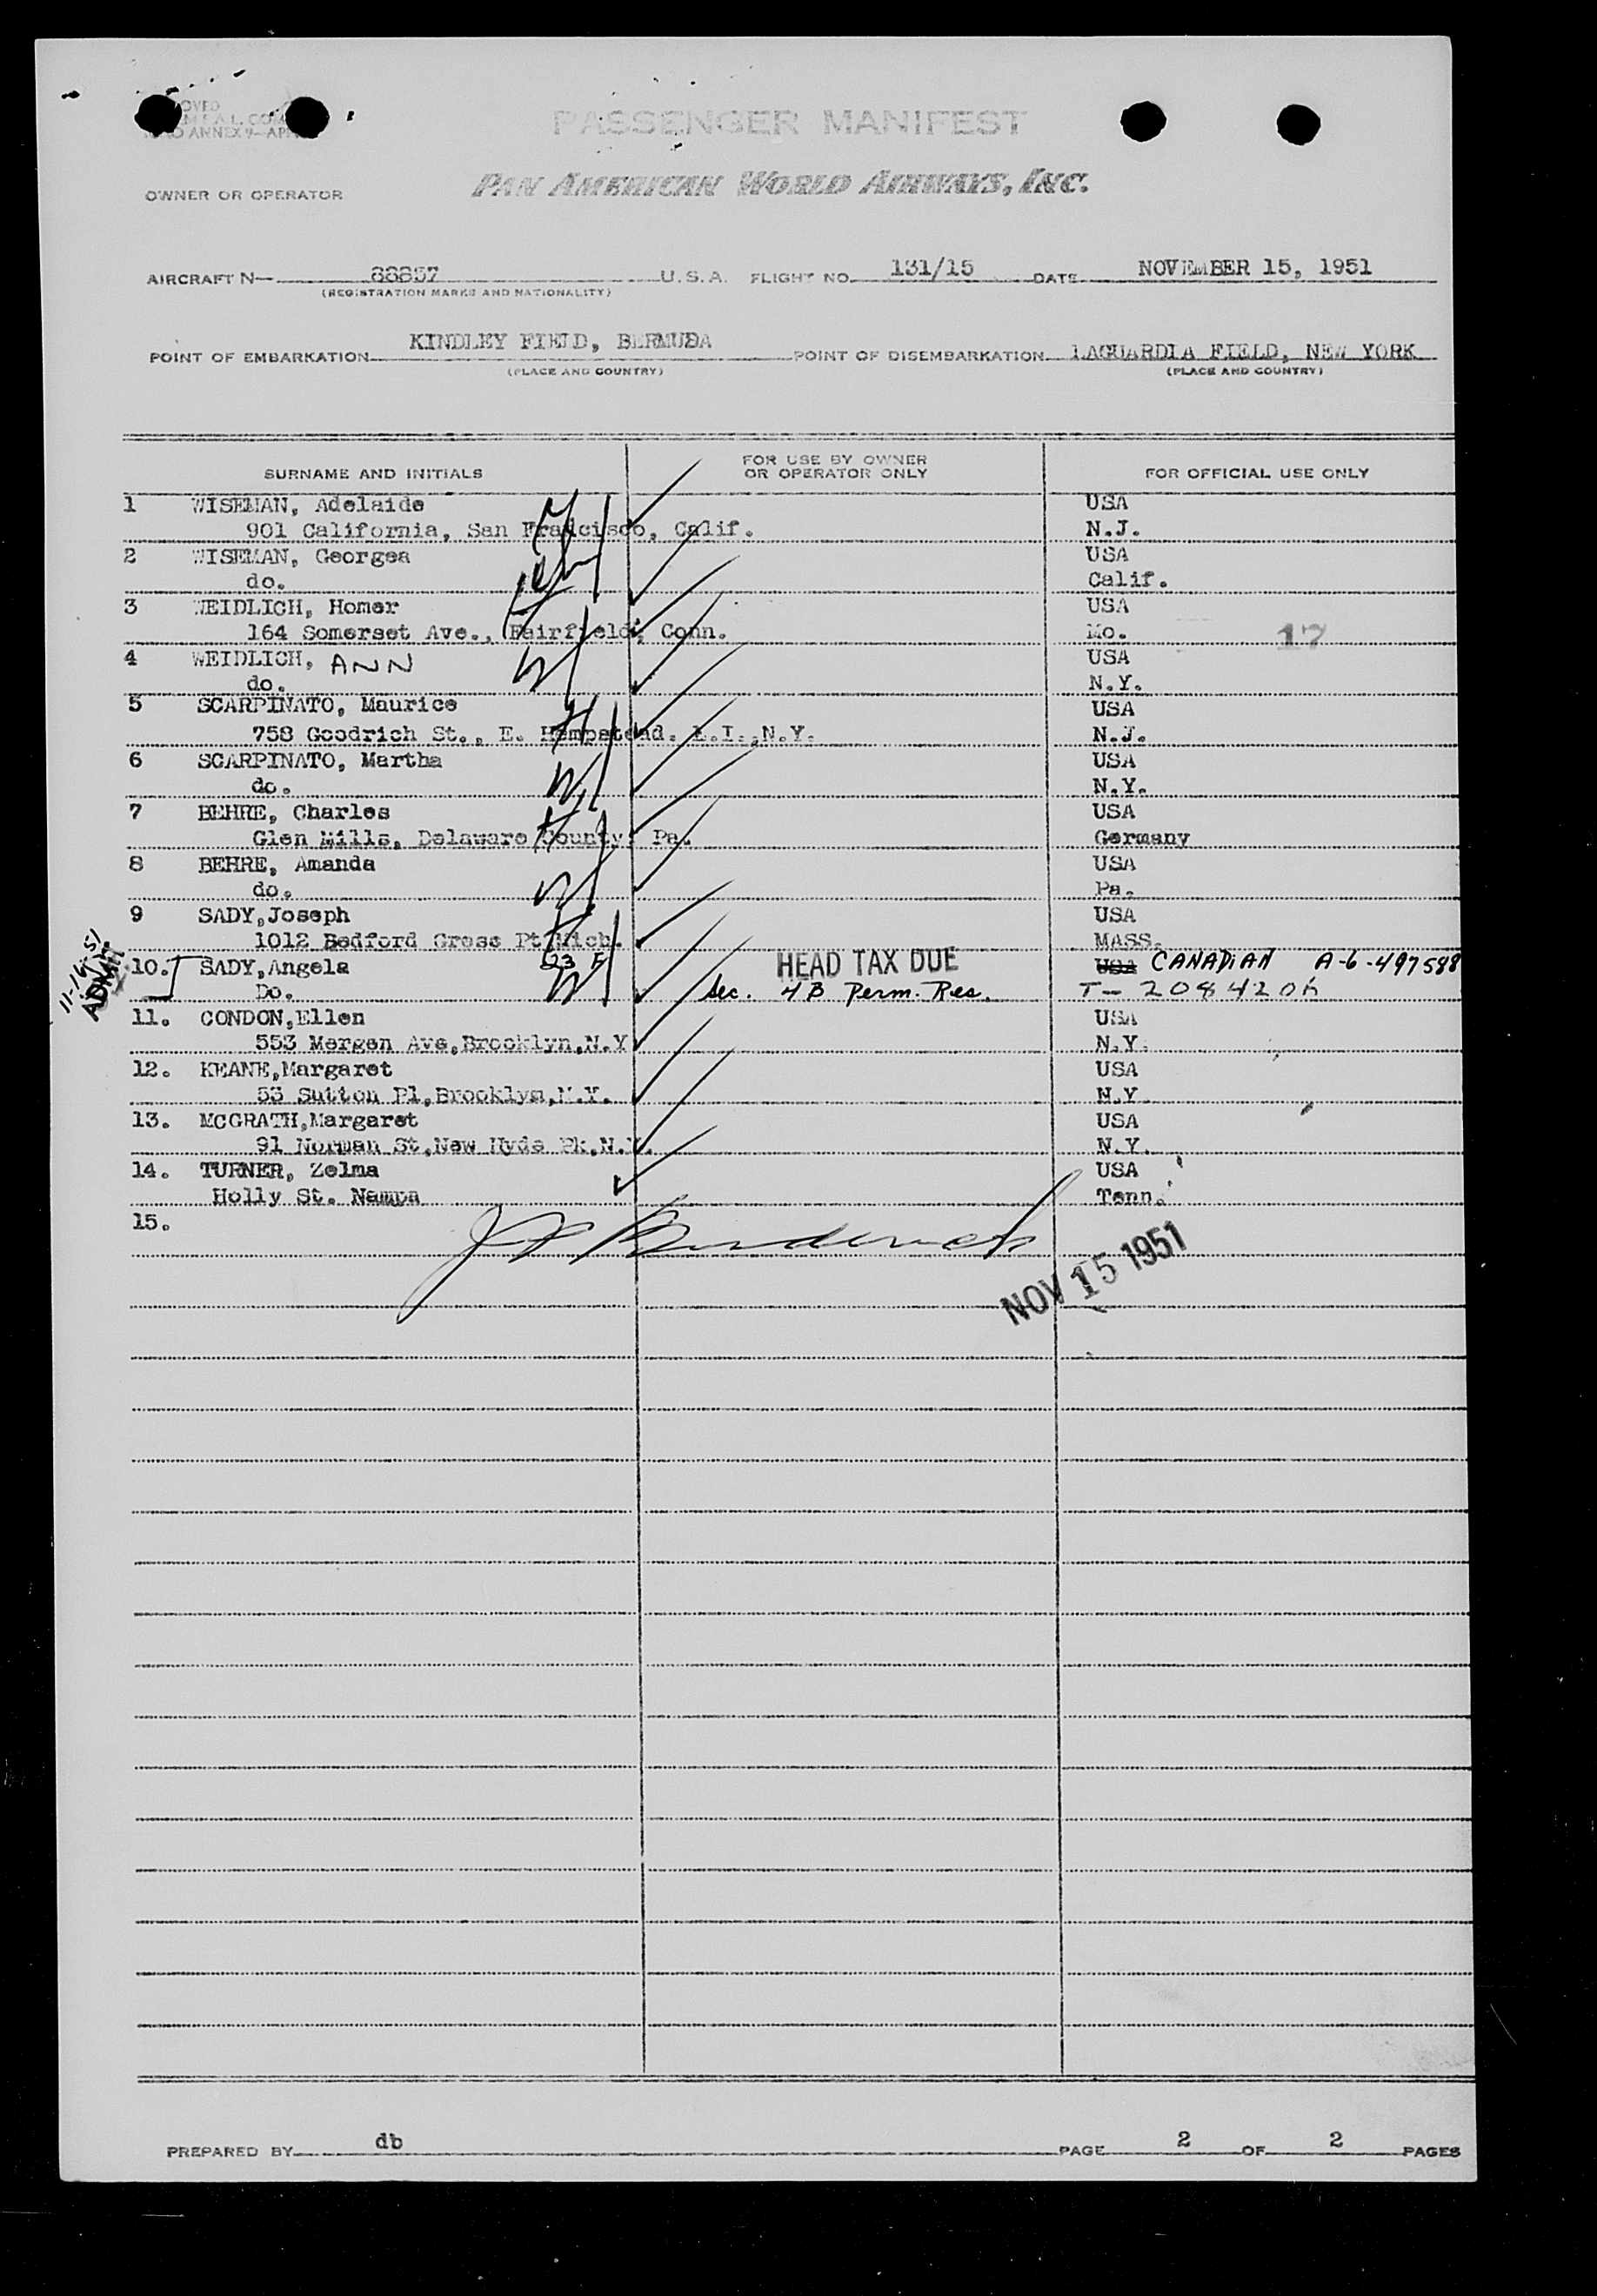 PASSENGER MANIFEST
OWNER OR OPERATOR PAN AMERICAN WORLD AIRWAYS, INC.
AIRCRAFT N— 88857 U.S.A. FLIGHT NO. 131/15 DATE NOVEMBER 15, 1951
(REGISTRATION MARKS AND NATIONALITY)
POINT OF EMBARKATION KINDLEY FIELD, BERMUDA POINT OF DISEMBARKATION LAGUARDIA FIELD, NEW YORK
(PLACE AND COUNTRY) (PLACE AND COUNTRY)
SURNAME AND INITIALS FOR USE BY OWNER OR OPERATOR ONLY FOR OFFICIAL USE ONLY
1 WISEMAN, Adelaide USA
901 California, San Francisco, Calif. N.J.
2 WISEMAN, Georgea USA
do. Calif.
3 WEIDLICH, Homer USA
164 Somerset Ave., Fairfield, Conn. Mo. 17
4 WEIDLICH, ANN USA
do. N.Y.
5 SCARPINATO, Maurice USA
758 Goodrich St., E. Hempstead. L.I.,N.Y. N.J.
6 SCARPINATO, Martha USA
do. N.Y.
7 BEHRE, Charles USA
Glen Mills, Delaware County, Pa. Germany
8 BEHRE, Amanda USA
do. Pa.
9 SADY,Joseph USA
1012 Bedford Gross Pt Mich. MASS.
11-16-51 ADMIT
10. SADY,Angela 53 F HEAD TAX DUE USA CANADIAN A-6-497588
Do. Sec. 4B Perm. Res. T-208420
11. CONDON,Ellen USA
553 Mergen Ave,Brooklyn,N.Y N.Y.
12. KEANE,Margaret USA
53 Sutton Pl,Brooklyn,N.Y. N.Y
13. MCGRATH,Margaret USA
91 Norman St,New Hyde Pk,N.Y. N.Y.
14. TURNER, Zelma USA
Holly St. Nampa Tenn.
15.
NOV 15 1951
PREPARED BY db PAGE 2 OF 2 PAGES